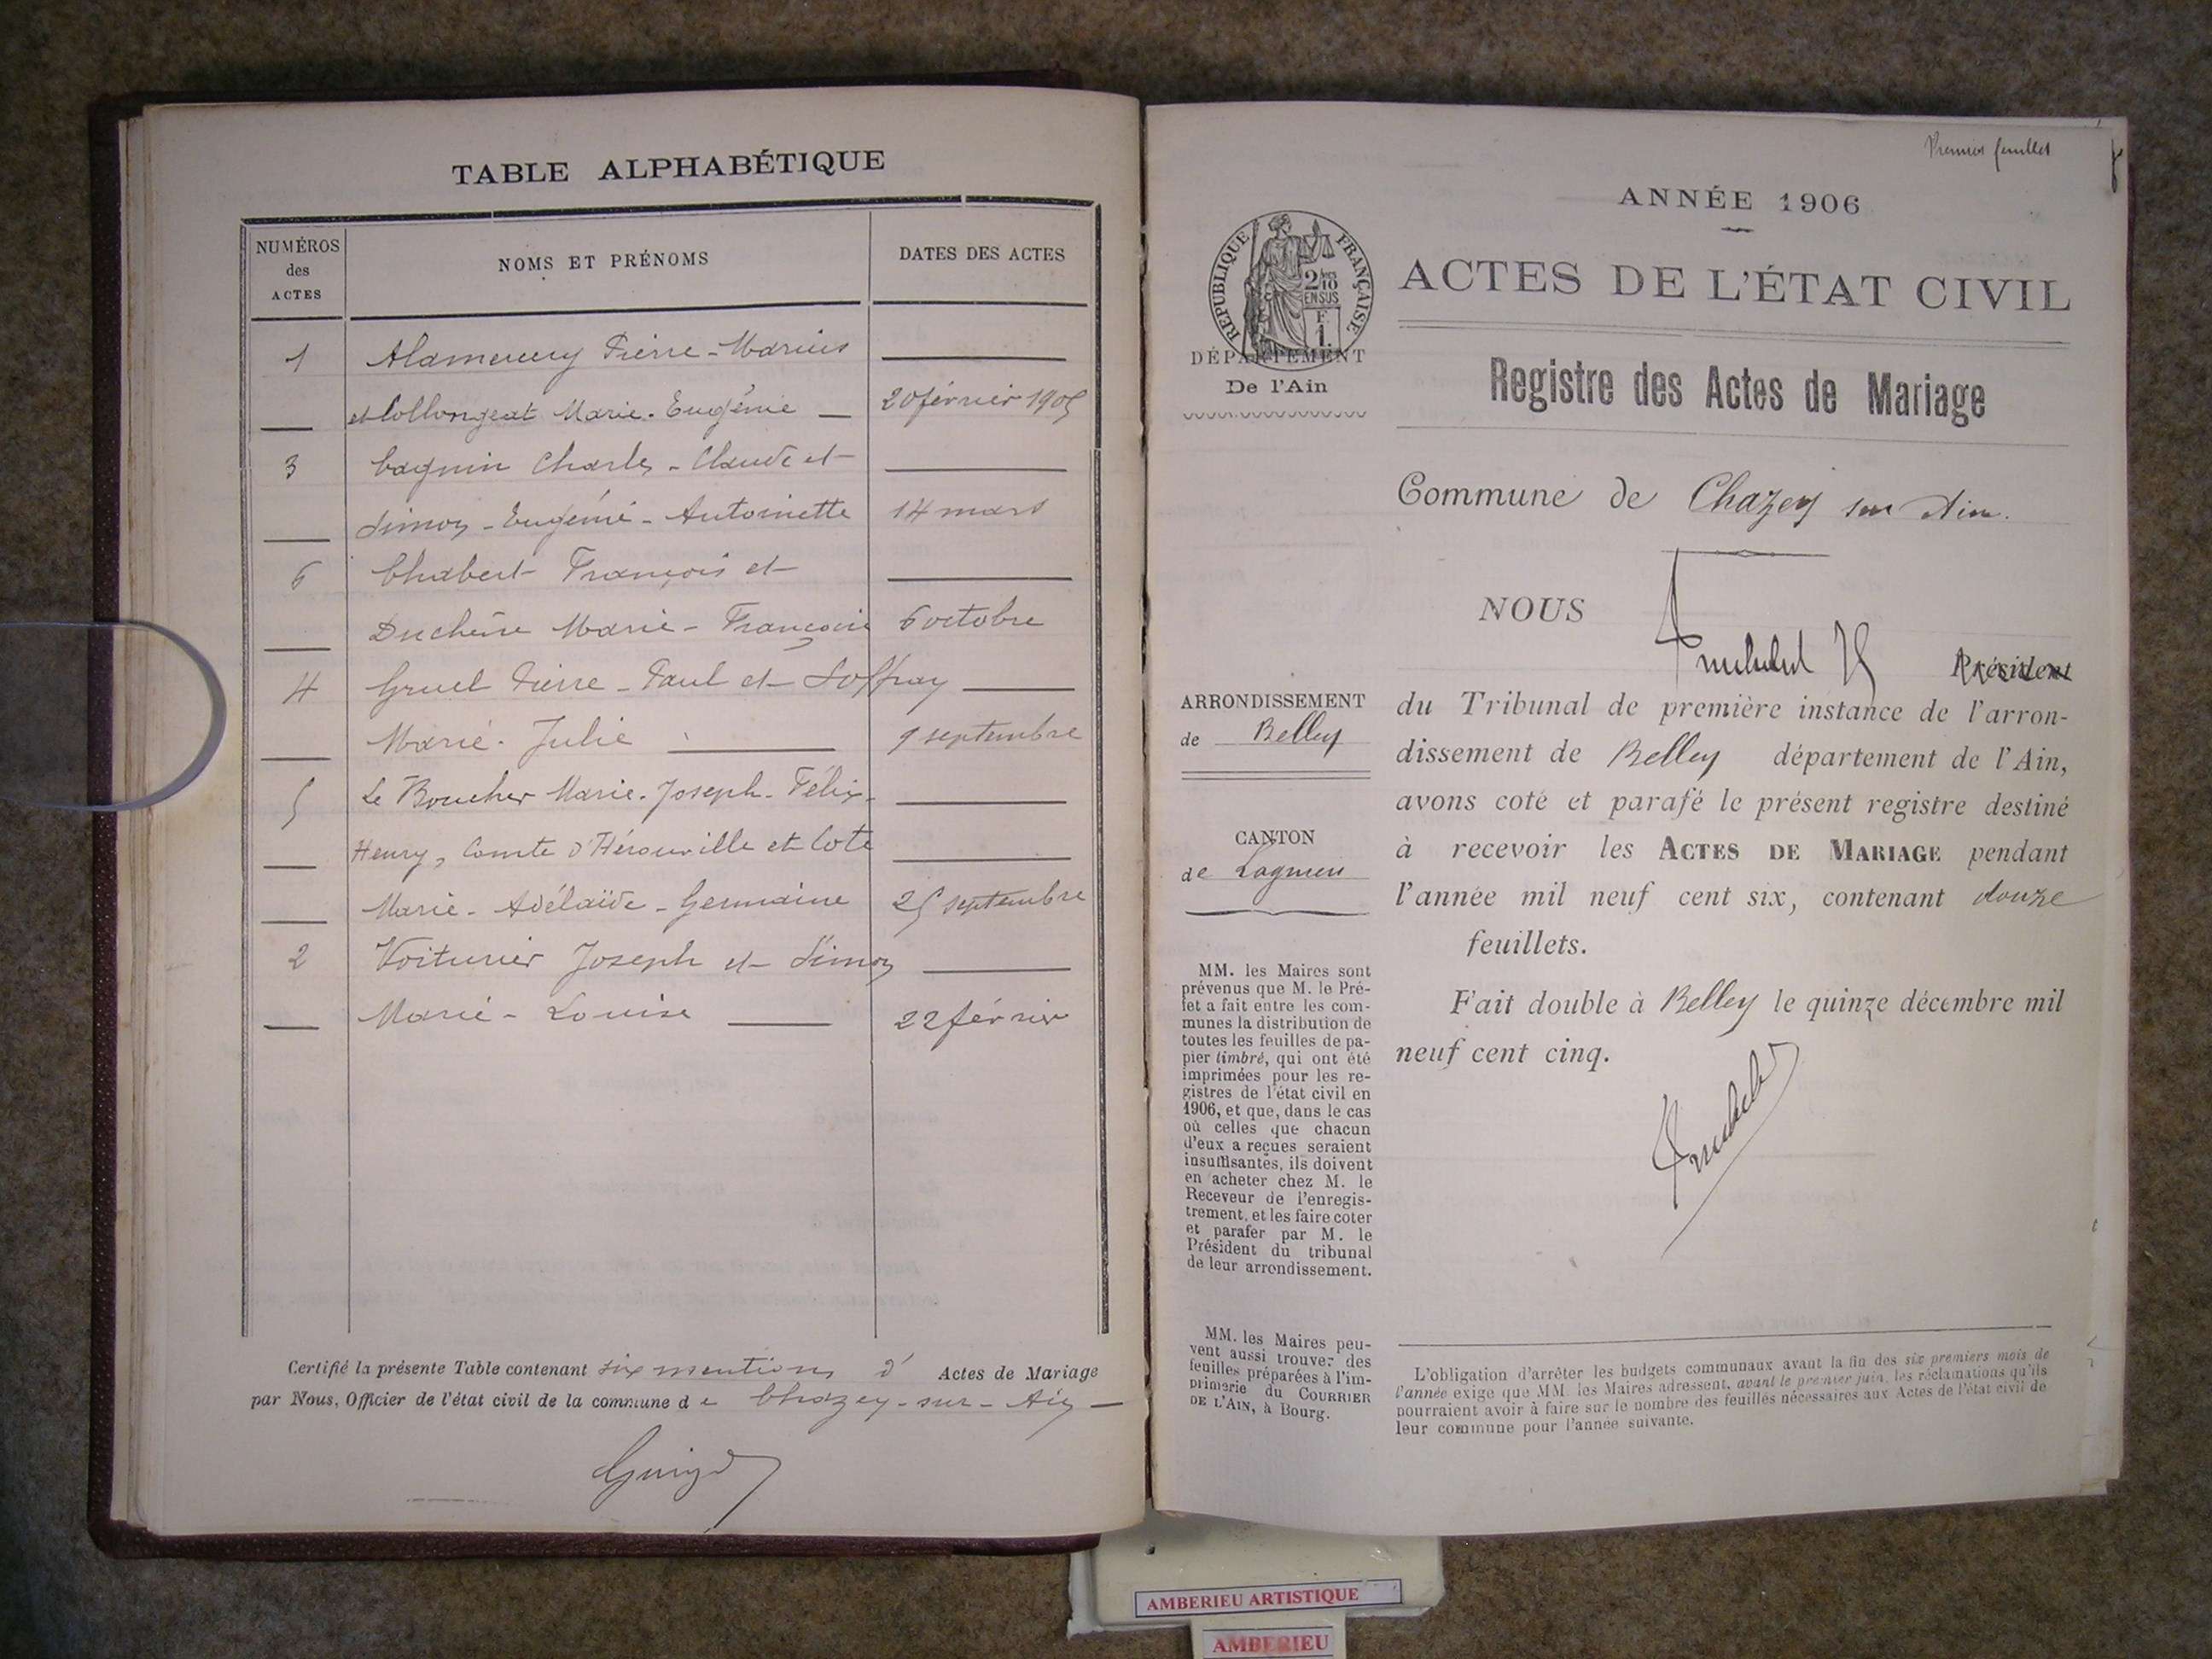 TABLE ALPHABÉTIQUE
NUMÉROS
des
ACTES
NOMS ET PRÉNOMS
DATES DES ACTES
1 Alamercery Pierre-Marius
et Collongeat Marie-Eugénie 20 février 1905
3 Caguin Charles-Claude et
Simon-Eugénie-Antoinette 14 mars
6 Chabert François et
Duchêne Marie-Françoise 6 octobre
4 Gruel Pierre-Paul et Soffray
Marie-Julie 9 septembre
5 Le Boucher Marie-Joseph-Félix-
Henry, Comte d'Hérouville et Cote
Marie-Adélaïde-Germaine 25 septembre
2 Voiturier Joseph et Simon
Marie-Louise 22 février
Certifié la présente Table contenant six mentions d' Actes de Mariage
par Nous, Officier de l'état civil de la commune de Chazey-sur-Ain
Premier feuillet
ANNÉE 1906
RÉPUBLIQUE FRANÇAISE
2/10
EN SUS
F.
1.
DÉPARTEMENT
De l'Ain
ACTES DE L'ÉTAT CIVIL
Registre des Actes de Mariage
Commune de Chazey sur Ain.
NOUS
Président
du Tribunal de première instance de l'arron-
dissement de Belley département de l'Ain,
avons coté et parafé le présent registre destiné
à recevoir les ACTES DE MARIAGE pendant
l'année mil neuf cent six, contenant douze
feuillets.
Fait double à Belley le quinze décembre mil
neuf cent cinq.
ARRONDISSEMENT
de Belley
CANTON
de Lagnieu
MM. les Maires sont
prévenus que M. le Pré-
fet a fait entre les com-
munes la distribution de
toutes les feuilles de pa-
pier timbré, qui ont été
imprimées pour les re-
gistres de l'état civil en
1906, et que, dans le cas
où celles que chacun
d'eux a reçues seraient
insuffisantes, ils doivent
en acheter chez M. le
Receveur de l'enregis-
trement, et les faire coter
et parafer par M. le
Président du tribunal
de leur arrondissement.
MM. les Maires peu-
vent aussi trouver des
feuilles préparées à l'im-
primerie du COURRIER
DE L'AIN, à Bourg.
L'obligation d'arrêter les budgets communaux avant la fin des six premiers mois de
l'année exige que MM. les Maires adressent, avant le premier juin, les réclamations qu'ils
pourraient avoir à faire sur le nombre des feuilles nécessaires aux Actes de l'état civil de
leur commune pour l'année suivante.
AMBERIEU ARTISTIQUE
AMBERIEU